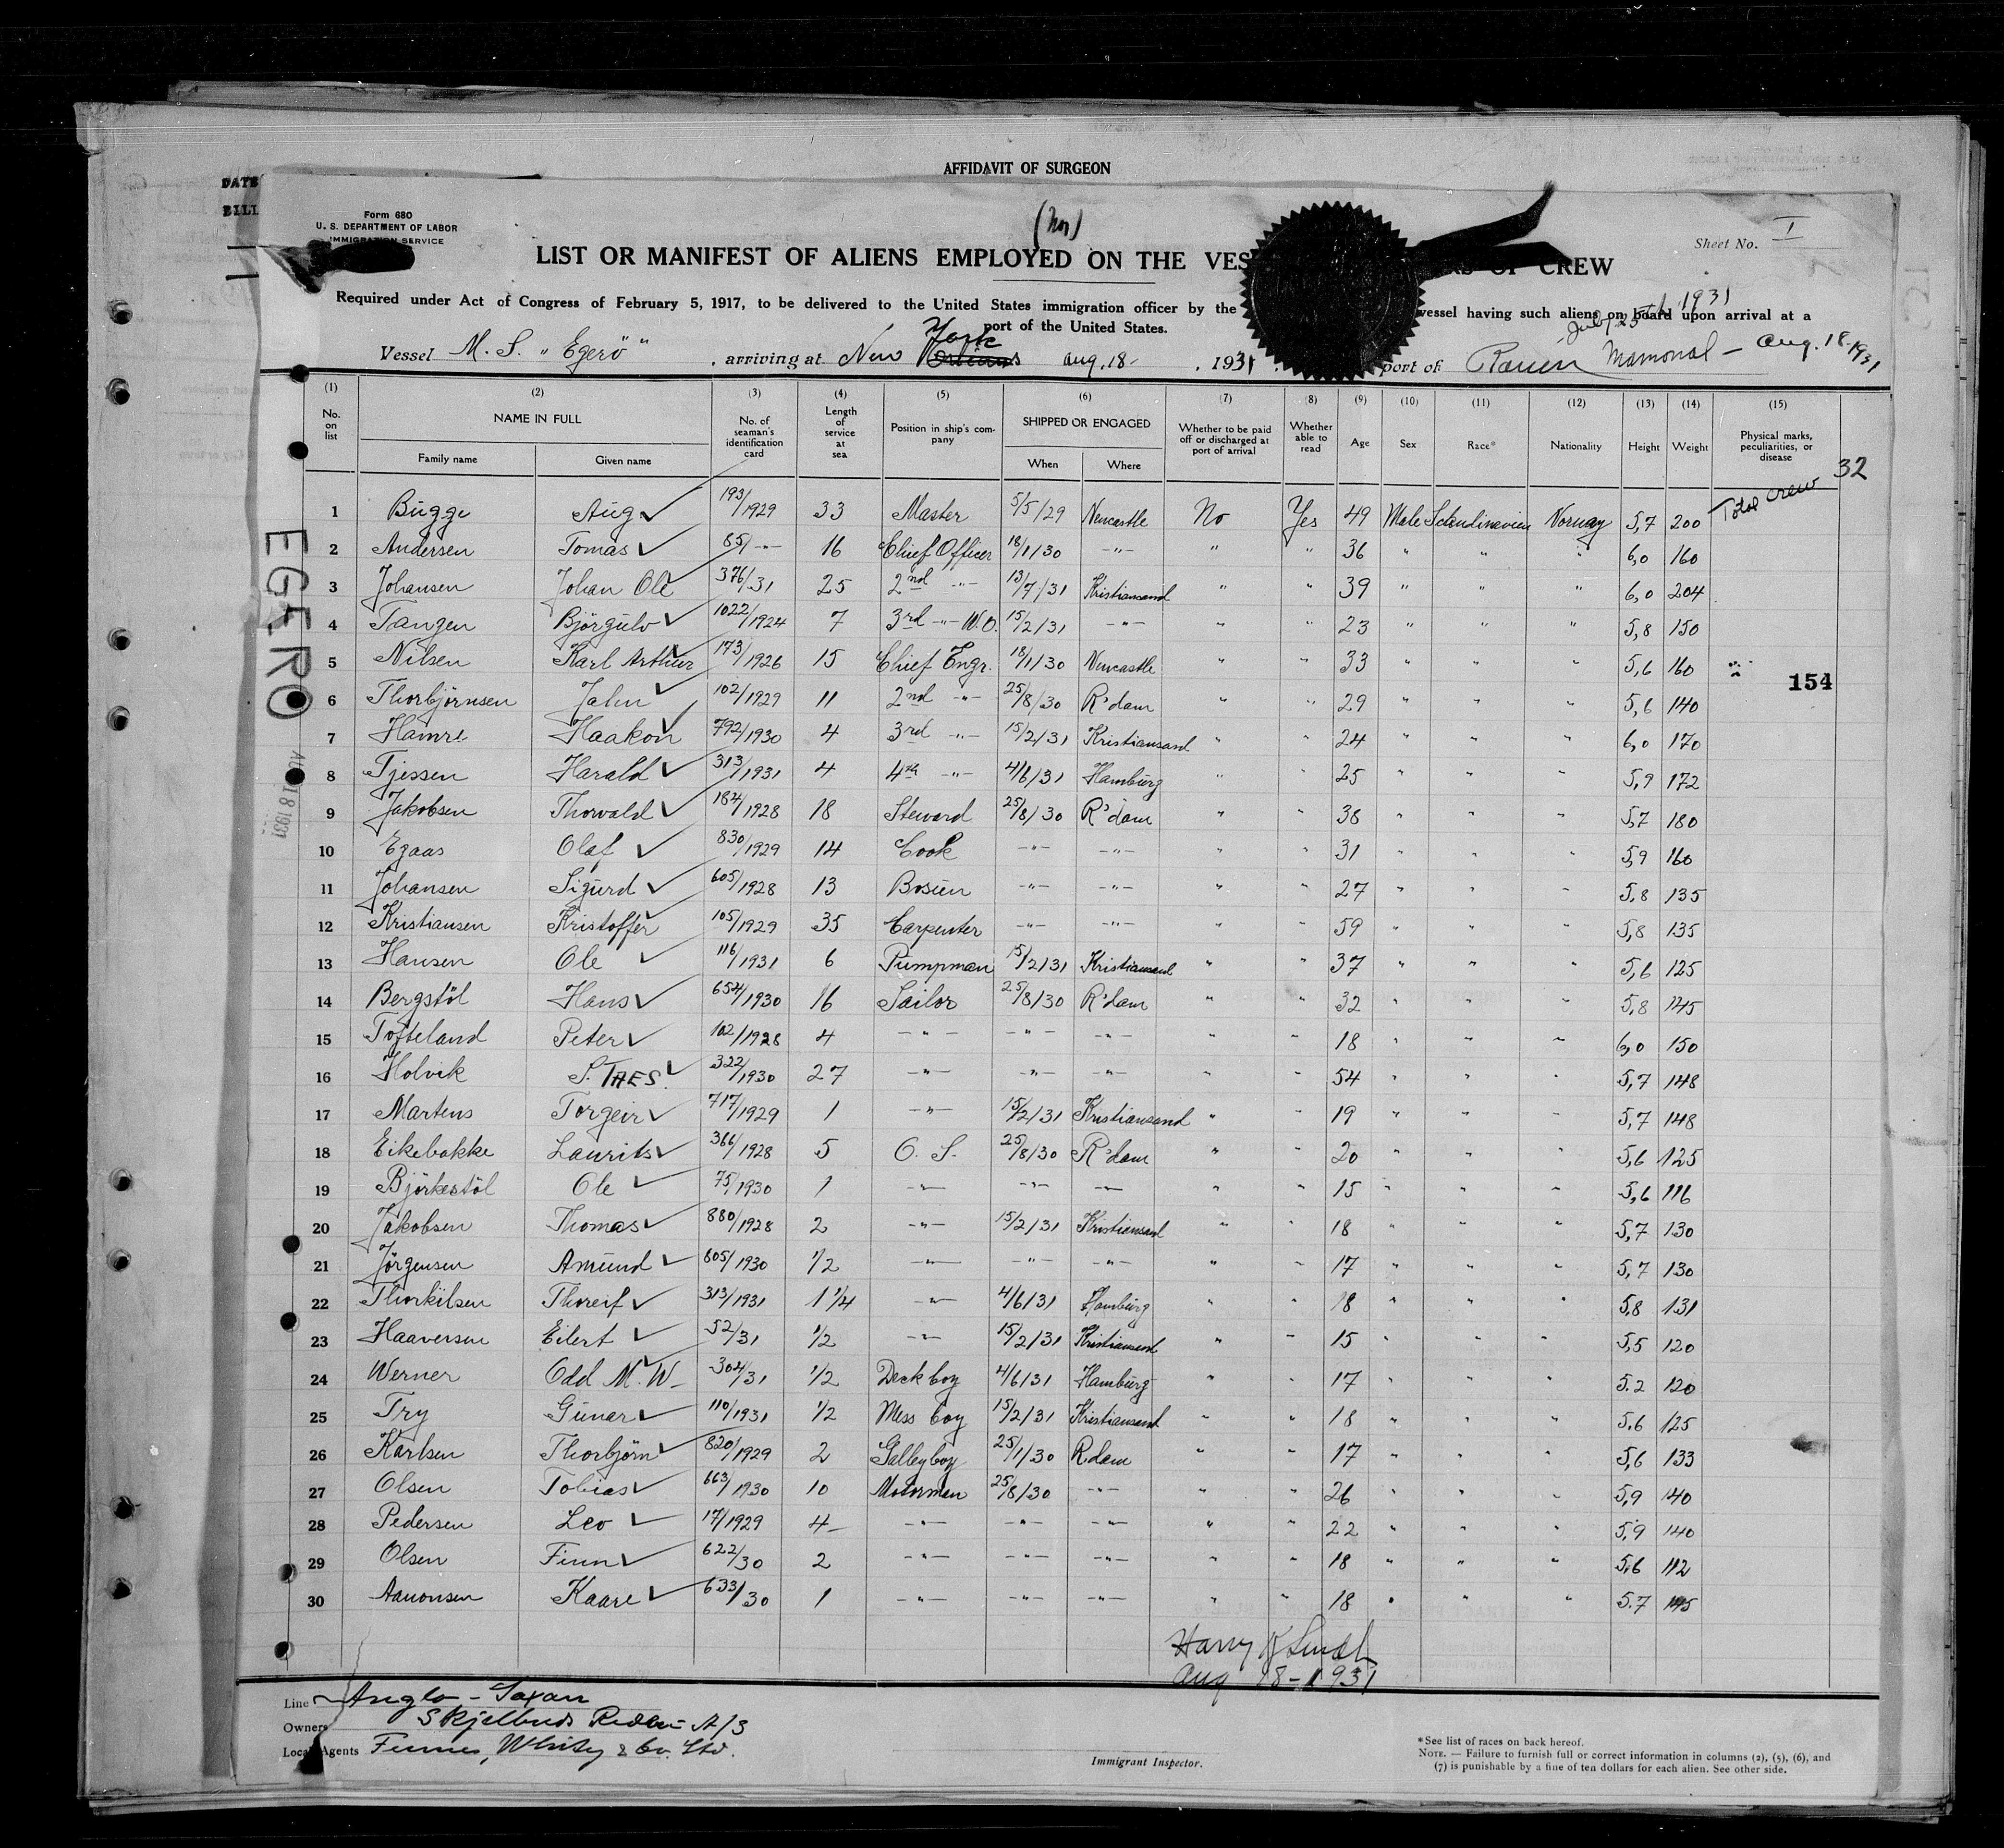 AFFIDAVIT OF SURGEON
DATE
BILL
Form 680
U. S. DEPARTMENT OF LABOR
IMMIGRATION SERVICE
(Nor)
Sheet No. I
LIST OR MANIFEST OF ALIENS EMPLOYED ON THE VES OF CREW
Required under Act of Congress of February 5, 1917, to be delivered to the United States immigration officer by the vessel having such aliens on board upon arrival at a
port of the United States.
July 25th 1931
Vessel M. S. „Egerö" , arriving at New York Orleans Aug. 18- , 1931 port of Rouen Mamonal - Aug. 18-1931
(1) (2) (3) (4) (5) (6) (7) (8) (9) (10) (11) (12) (13) (14) (15)
No. on list NAME IN FULL Family name Given name No. of seaman's identification card Length of service at sea Position in ship's company SHIPPED OR ENGAGED When Where Whether to be paid off or discharged at port of arrival Whether able to read Age Sex Race* Nationality Height Weight Physical marks, peculiarities, or disease
Total crew 32
1 Bugge Aug 193/1929 33 Master 5/5/29 Newcastle No Yes 49 Male Scandinavien Norway 5,7 200
2 Andersen Tomas 85/-"- 16 Chief Officer 18/1/30 -"- " " 36 " " " 6,0 160
3 Johansen Johan Ole 376/31 25 2nd -"- 13/7/31 Kristiansand " " 39 " " " 6,0 204
4 Tangen Björgulv 1022/1924 7 3rd -"- W.O. 15/2/31 -"- " " 23 " " " 5,8 150
5 Nilsen Karl Arthur 173/1926 15 Chief Engr. 18/1/30 Newcastle " " 33 " " " 5,6 160
154
6 Thorbjörnsen John 102/1929 11 2nd -"- 25/8/30 R'dam " " 29 " " " 5,6 140
7 Hamre Haakon 792/1930 4 3rd -"- 15/2/31 Kristiansand " " 24 " " " 6,0 170
8 Tjessen Harald 313/1931 4 4th -"- 4/6/31 Hamburg " " 25 " " " 5,9 172
9 Jakobsen Thorvald 184/1928 18 Steward 25/8/30 R'dam " " 38 " " " 5,7 180
10 Egaas Olaf 830/1929 14 Cook -"- -"- " " 31 " " " 5,9 160
11 Johansen Sigurd 605/1928 13 Bosun -"- -"- " " 27 " " " 5,8 135
12 Kristiansen Kristoffer 105/1929 35 Carpenter -"- -"- " " 59 " " " 5,8 135
13 Hansen Ole 116/1931 6 Pumpman 15/2/31 Kristiansand " " 37 " " " 5,6 125
14 Bergstöl Hans 654/1930 16 Sailor 25/8/30 R'dam " " 32 " " " 5,8 145
15 Tofteland Peter 102/1928 4 -"- -"- -"- " " 18 " " " 6,0 150
16 Holvik S. 322/1930 27 -"- -"- -"- " " 54 " " " 5,7 148
17 Martens Torgeir 717/1929 1 -"- 15/2/31 Kristiansand " " 19 " " " 5,7 148
18 Eikebakke Laurits 366/1928 5 O. S. 25/8/30 R'dam " " 20 " " " 5,6 125
19 Björkestöl Ole 75/1930 1 -"- -"- -"- " " 15 " " " 5,6 116
20 Jakobsen Thomas 880/1928 2 -"- 15/2/31 Kristiansand " " 18 " " " 5,7 130
21 Jörgensen Amund 805/1930 1/2 -"- -"- -"- " " 17 " " " 5,7 130
22 Thorkilsen Thoreif 313/1931 1 1/4 -"- 4/6/31 Hamburg " " 18 " " " 5,8 131
23 Haaversen Eilert 52/31 1/2 -"- 15/2/31 Kristiansand " " 15 " " " 5,5 120
24 Werner Odd M. W. 304/31 1/2 Deck boy 4/6/31 Hamburg " " 17 " " " 5.2 120
25 Try Gunar 110/1931 1/2 Mess boy 15/2/31 Kristiansand " " 18 " " " 5.6 125
26 Karlsen Thorbjörn 820/1929 2 Galleyboy 25/1/30 Rdam " " 17 " " " 5,6 133
27 Olsen Tobias 663/1930 10 Motorman 25/8/30 -"- " " 26 " " " 5,9 140
28 Pedersen Leo 17/1929 4 -"- -"- -"- " " 22 " " " 5,9 140
29 Olsen Finn 622/30 2 -"- -"- -"- " " 18 " " " 5,6 112
30 Aanonsen Kaare 633/30 1 -"- -"- -"- " " 18 " " " 5.7 145
EGERO
AUG 18 1931
Harry
Aug 18-1931
Line Anglo-Saxon
Owners Skjelbreds Rederi A/S
Local Agents Furness, Withy & Co. Ltd.
Immigrant Inspector.
*See list of races on back hereof.
NOTE. — Failure to furnish full or correct information in columns (2), (5), (6), and
(7) is punishable by a fine of ten dollars for each alien. See other side.